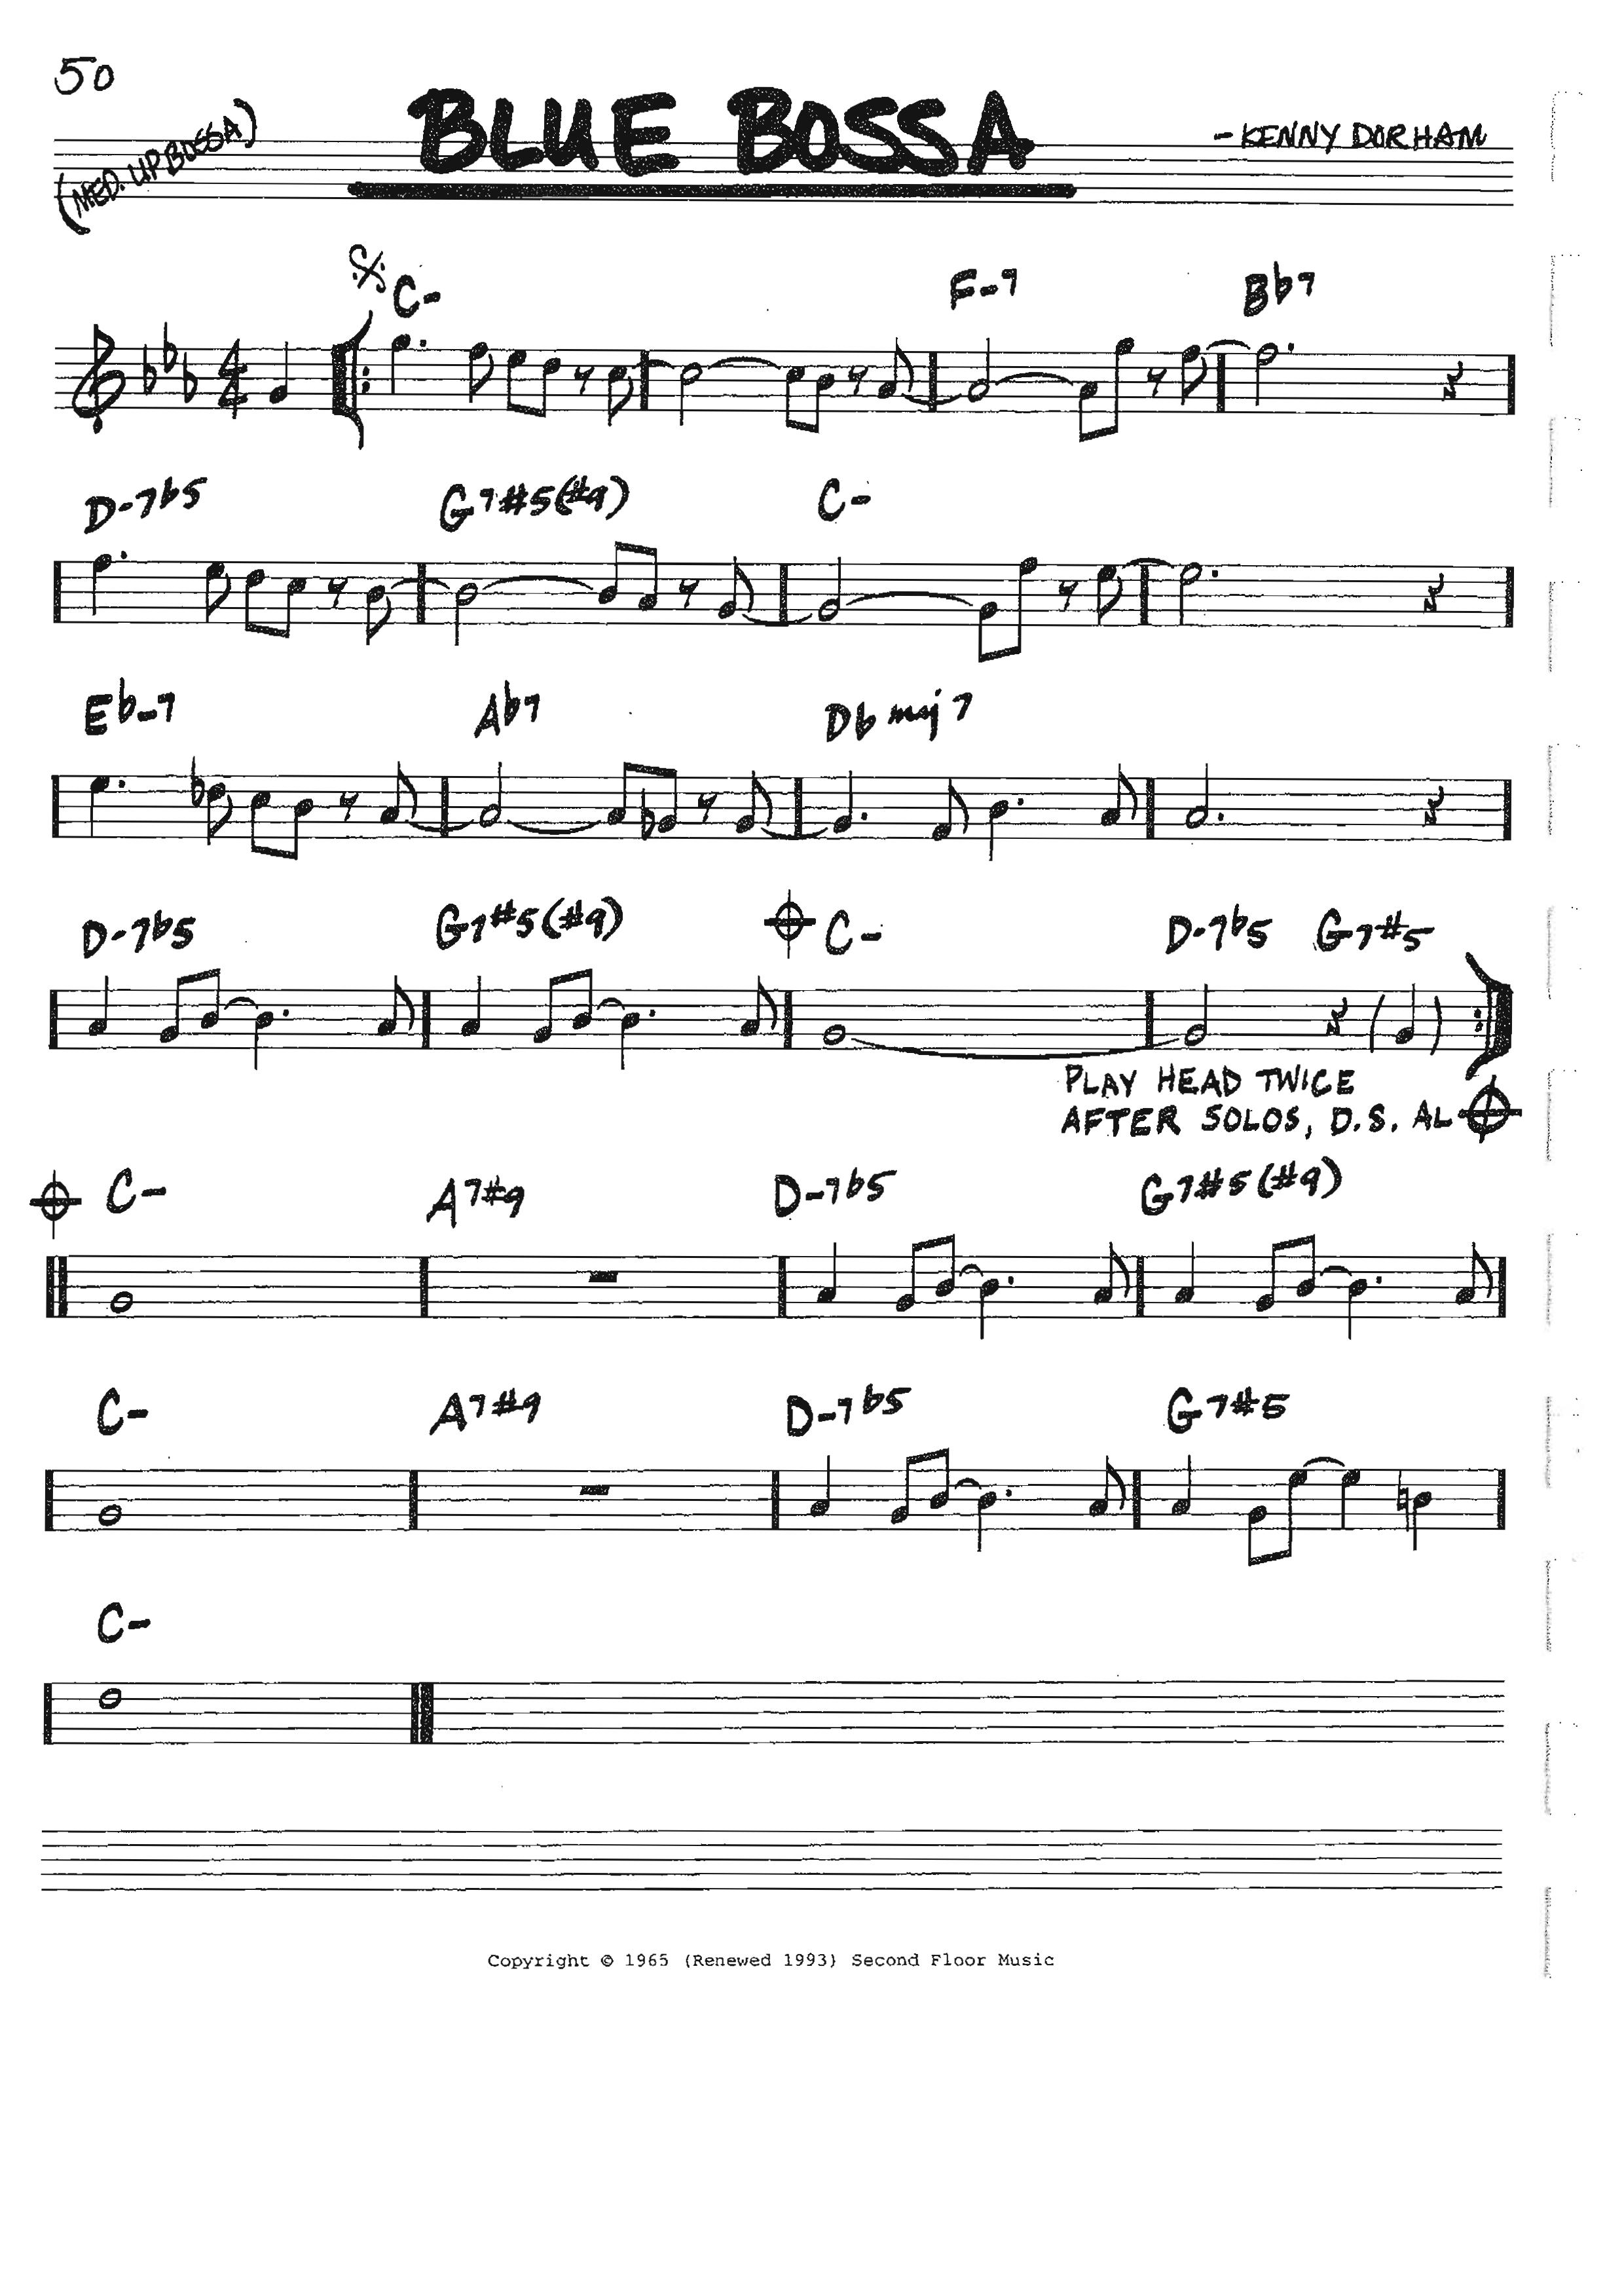 50
(MED. UP BOSSA)
BLUE BOSSA
- KENNY DORHAM
C- F-7 Bb7
D-7b5 G7#5(#9) C-
Eb-7 Ab7 Db maj7
D-7b5 G7#5(#9) C- D-7b5 G7#5
PLAY HEAD TWICE
AFTER SOLOS, D.S. AL
C- A7#9 D-7b5 G7#5(#9)
C- A7#9 D-7b5 G7#5
C-
Copyright © 1965 (Renewed 1993) Second Floor Music